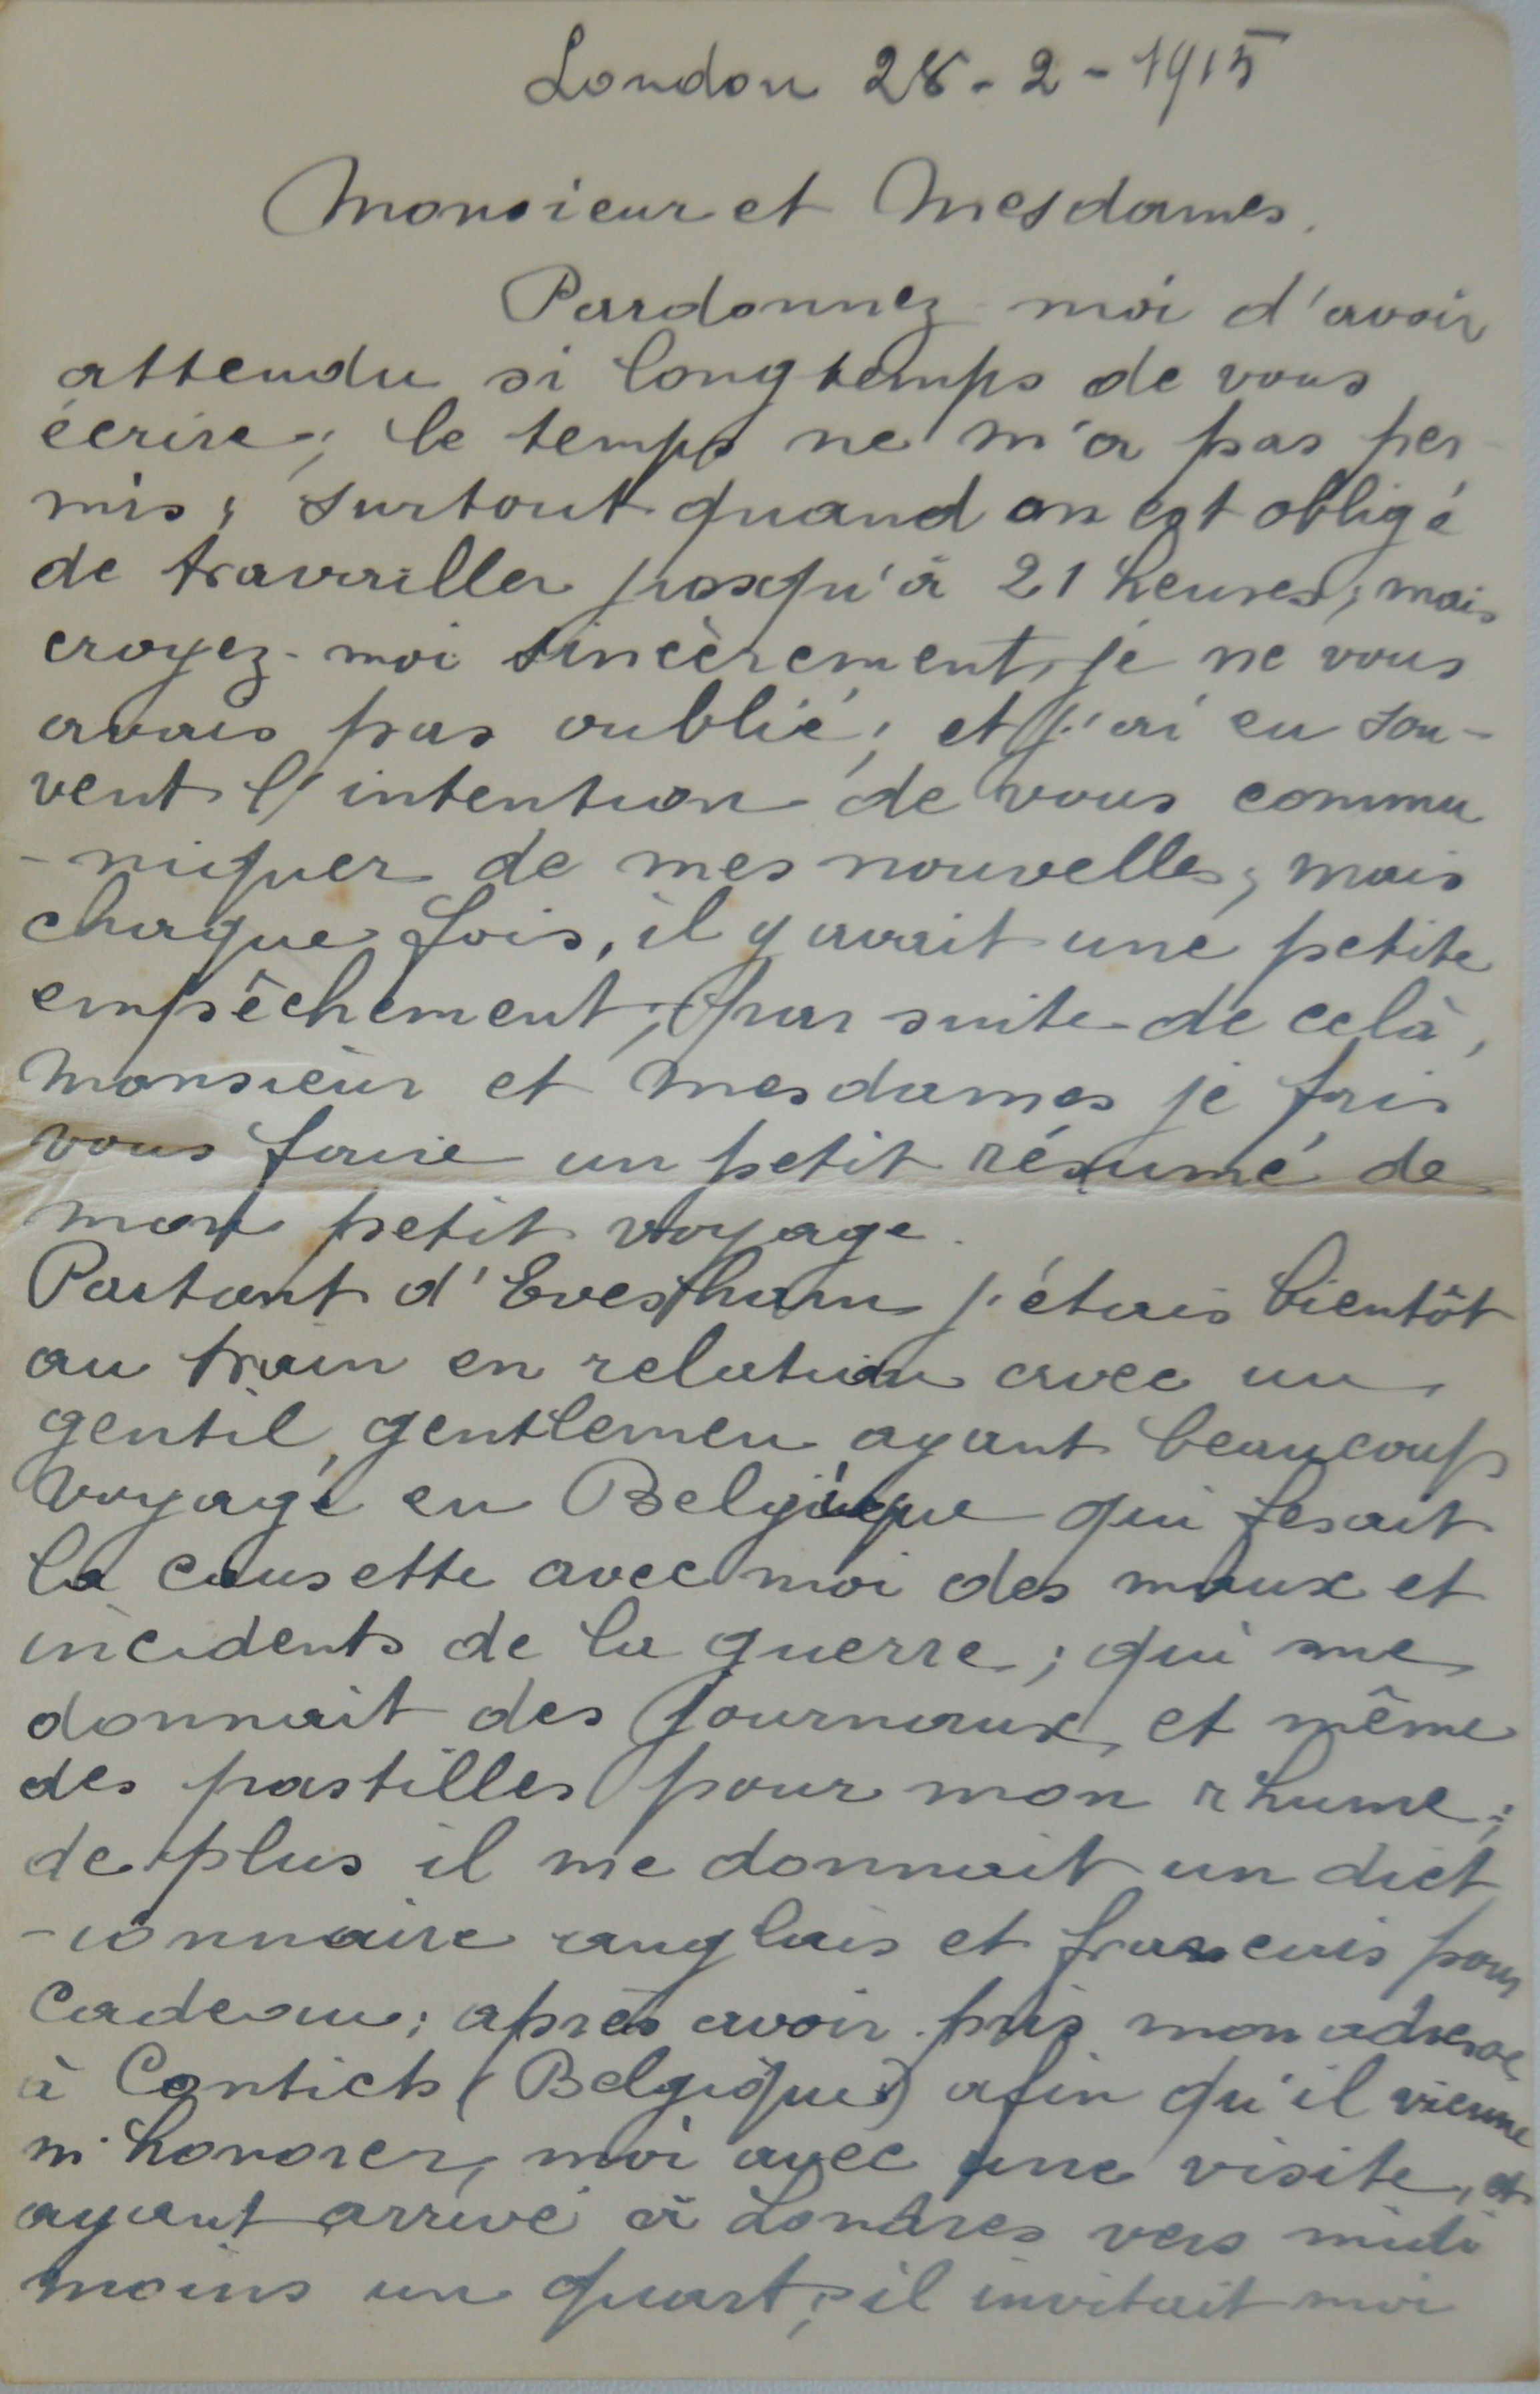 London 28-2-1915
Monsieur et Mesdames.
Pardonnez-moi d'avoir
attendu si longtemps de vous
écrire; le temps ne m'a pas per-
mis; surtout quand on est obligé
de travailler jusqu'à 21 heures; mais
croyez-moi sincèrement, je ne vous
avais pas oublié; et j'ai eu sou-
vent l'intention de vous commu
-niquer de mes nouvelles; mais
chaque fois, il y avait une petite
empêchement; par suite de celà,
Monsieur et Mesdames je fais
vous faire un petit résumé de
mon petit voyage.
Partant d'Evesham j'étais bientôt
au train en relation avec un
gentil gentlemen ayant beaucoup
voyagé en Belgique qui fesait
la causette avec moi des maux et
incidents de la guerre; qui me
donnait des journaux, et même
des pastilles pour mon rhume;
de plus il me donnait un dict
-ionnaire anglais et francais pour
cadeau; après avoir pris mon adresse
à Contich (Belgique) afin qu'il vienne
m'honorer, moi avec une visite, et
ayant arrivé à Londres vers midi
moins un quart; il invitait moi